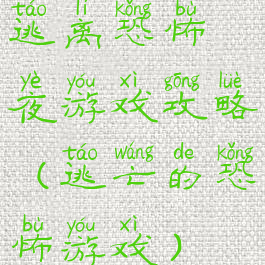 táo lí kǒng bù
逃离恐怖
yè yóu xì gōng lüè
夜游戏攻略
táo wáng de kǒng
（逃亡的恐
bù yóu xì
怖游戏）